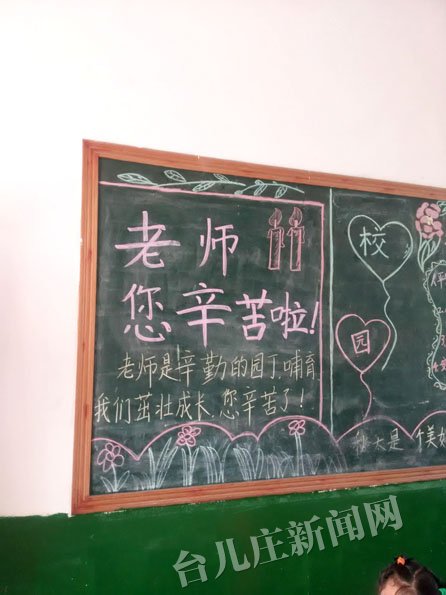 老师
您辛苦啦!
老师是辛勤的园丁,哺育
我们茁壮成长,您辛苦了!
校
园
大是
美
台儿庄新闻网